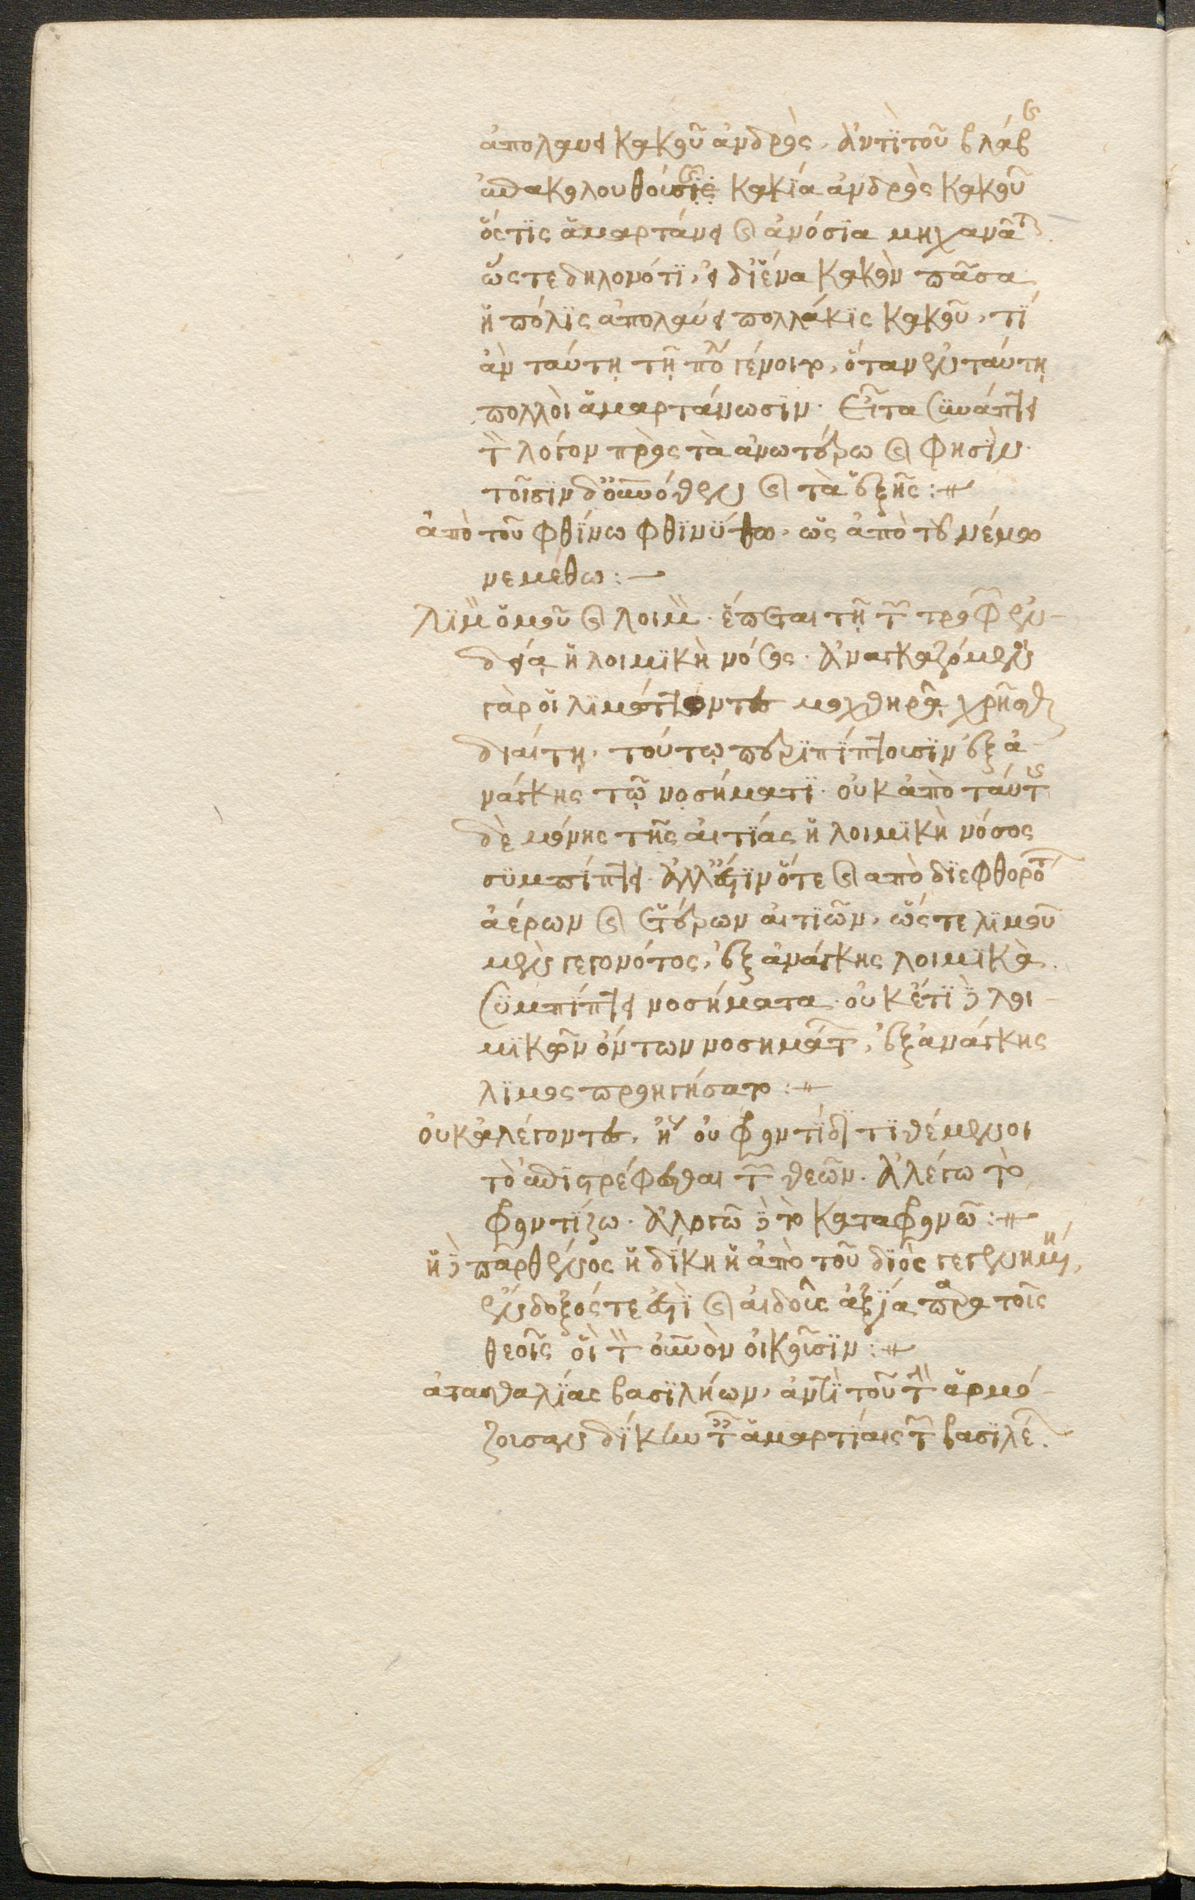 ἀπολαύει κακοῦ ἀνδρὸς. ἀντὶ τοῦ βλάβης
ἐπακολουθούσης κακία ἀνδρὸς κακοῦ
ὅςτις ἁμαρτάνει καὶ ἀνόσια μηχανᾶται.
ὥςτε δηλονότι, εἰ δι' ἕνα κακὸν πᾶσα
ἡ πόλις ἀπολαύει πολλάκις κακοῦ, τί
ἀν ταύτῃ τῇ πόλει γένοιτο, ὅταν ἐν ταύτῃ
πολλοὶ ἁμαρτάνωσιν. Εἶτα συνάπτει
τὸν λόγον πρὸς τὰ ἀνωτέρω καὶ φησίν.
τοῖσιν δ' οὐρανόθεν καὶ τὰ ἑξῆς :
ἀπὸ τοῦ φθίνω φθινύθω. ὡς ἀπὸ τοῦ νέμω
νεμέθω :
λιμὸν ὁμοῦ καὶ λοιμόν. ἕπεται τῇ τῶν τροφῶν ἐν-
δείᾳ ἡ λοιμικὴ νόσος. Ἀναγκαζόμενοι
γὰρ οἱ λιμώττοντες μοχθηρᾷ χρῆσθαι
διαίτῃ, τούτῳ περιπίπτουσιν ἐξ ἀ-
νάγκης τῷ νοσήματι. οὐκ ἀπὸ ταύτης
δὲ μόνης τῆς αἰτίας ἡ λοιμικὴ νόσος
συμπίπτει. Ἀλλ' ἔστιν ὅτε καὶ ἀπὸ διεφθορότων
ἀέρων καὶ ἑτέρων αἰτιῶν. ὥςτε λιμοῦ
μὲν γεγονότος, ἐξ ἀνάγκης λοιμικὰ
συμπίπτει νοσήματα. οὐκέτι δὲ λοι-
μικῶν ὄντων νοσημάτων, ἐξ ἀνάγκης
λιμὸς προηγήσατο :
οὐκ ἀλέγοντες, ἢ οὐ φροντίδι τιθέμενοι
τὸ ἐπιστρέφεσθαι τῶν θεῶν. Ἀλέγω τὸ
φροντίζω. Ἀλογῶ δὲ τὸ καταφρονῶ :
ἡ δὲ παρθένος ἡ δίκη ἡ ἀπὸ τοῦ διὸς γεγενημένη,
ἔνδοξός τε ἐστὶ καὶ αἰδοῦς ἀξία παρὰ τοῖς
θεοῖς οἳ τὸν οὐρανὸν οἰκοῦσιν :
ἀτασθαλίας βασιλήων. ἀντὶ τοῦ τὴν ἁρμό-
ζουσαν δίκην ταῖς ἁμαρτίαις τῶν βασιλέων.